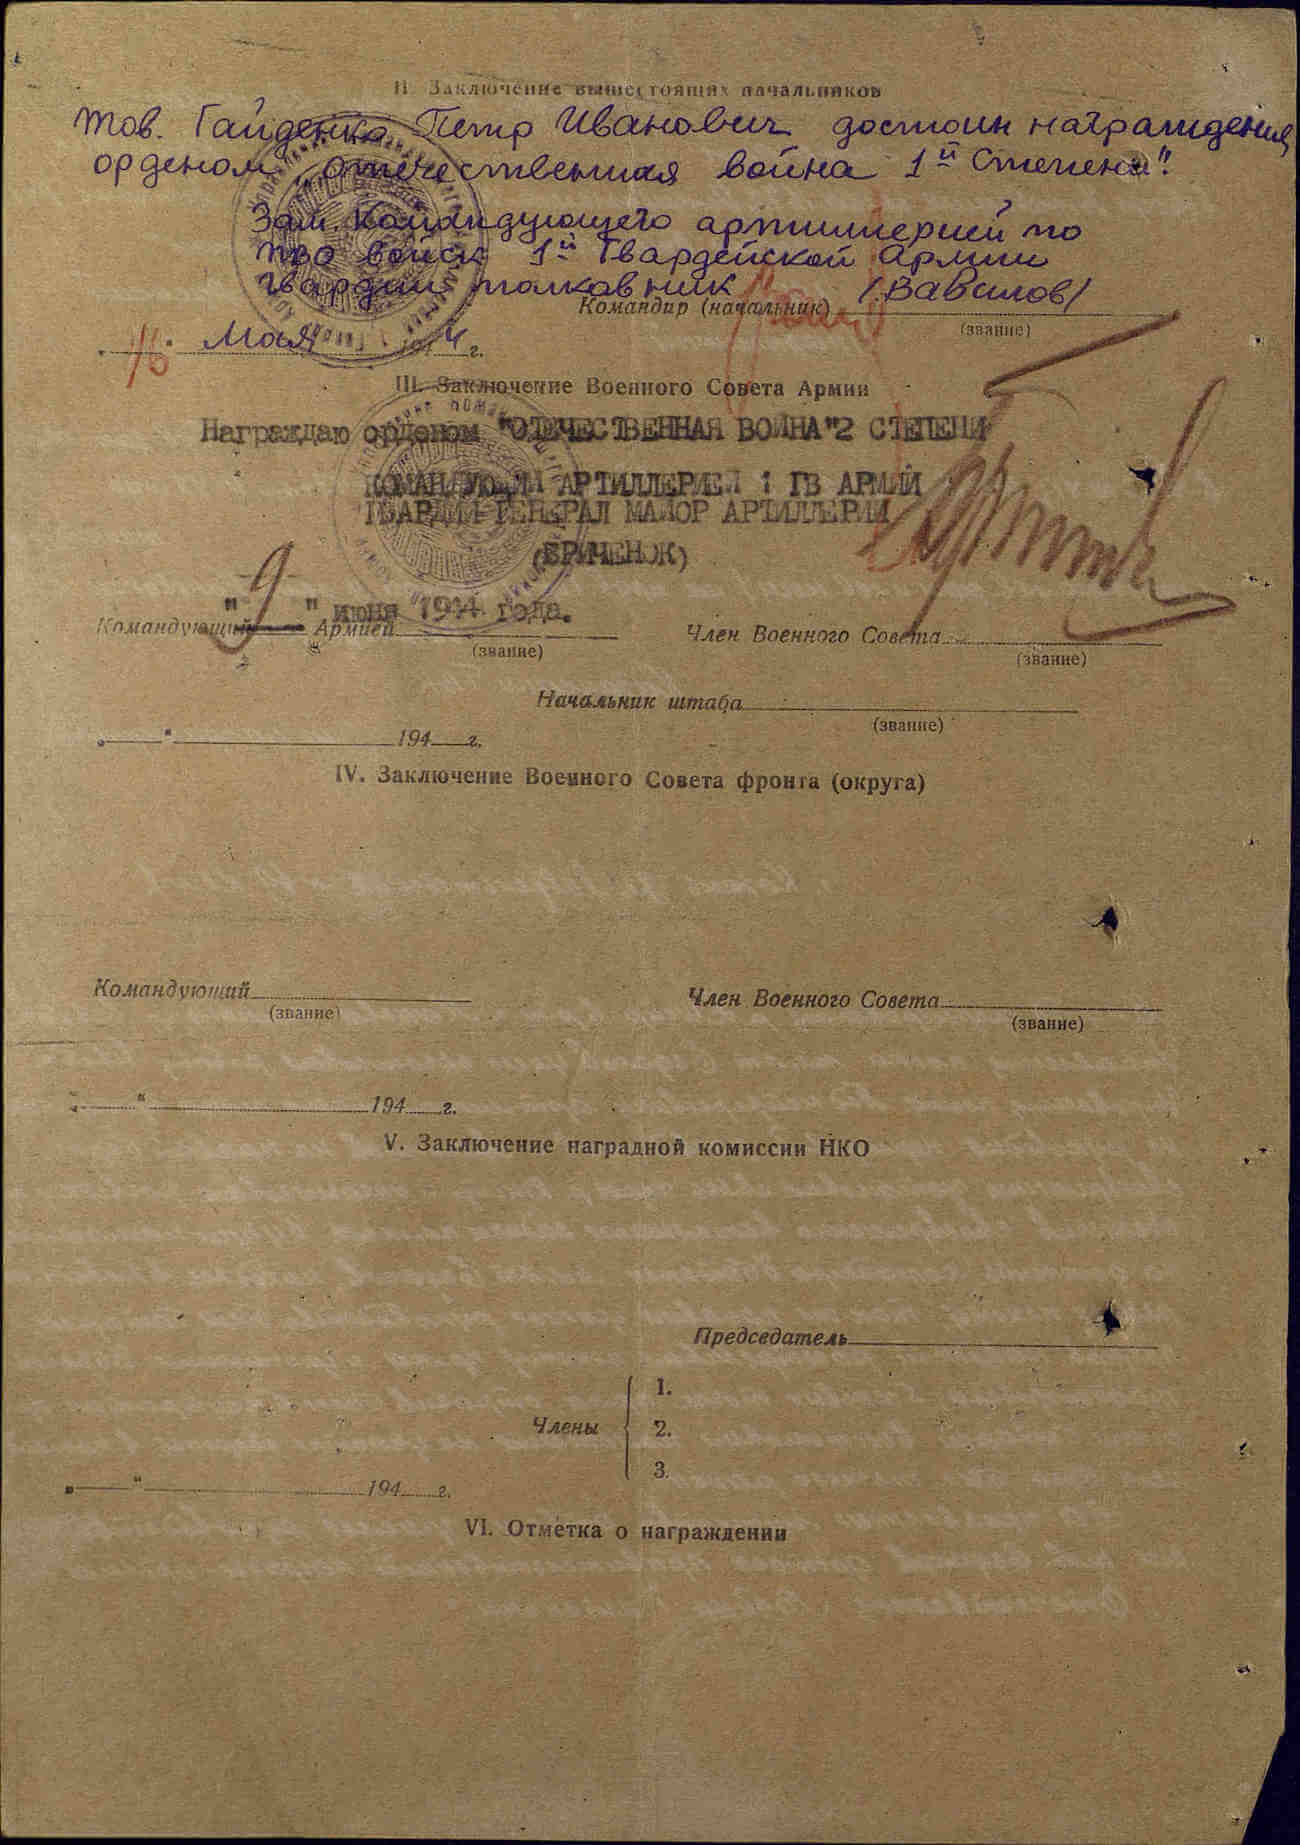 II. Заключение вышестоящих начальников
тов. Гайденко Петр Иванович достоин награждения
орденом „Отечественная война 1й Степени".
Зам. Командующего артиллерией по
ПВО войск 1й Гвардейской Армии
Гвардии полковник /Вавилов/
Командир (начальник)
(звание)
„16" Мая 1944 г.
III. Заключение Военного Совета Армии
Награждаю орденом "ОТЕЧЕСТВЕННАЯ ВОЙНА"2 СТЕПЕНИ
КОМАНДУЮЩИЙ АРТИЛЛЕРИЕЙ 1 ГВ АРМИИ
ГВАРДИИ ГЕНЕРАЛ МАЙОР АРТИЛЛЕРИИ
(БРИЧЕНОК)
"9" июня 1944 года.
Командующий Армией Член Военного Совета
(звание) (звание)
Начальник штаба
(звание)
„ " 194 г.
IV. Заключение Военного Совета фронта (округа)
Командующий Член Военного Совета
(звание) (звание)
„ " 194 г.
V. Заключение наградной комиссии НКО
Председатель
Члены
1.
2.
3.
„ " 194 г.
VI. Отметка о награждении